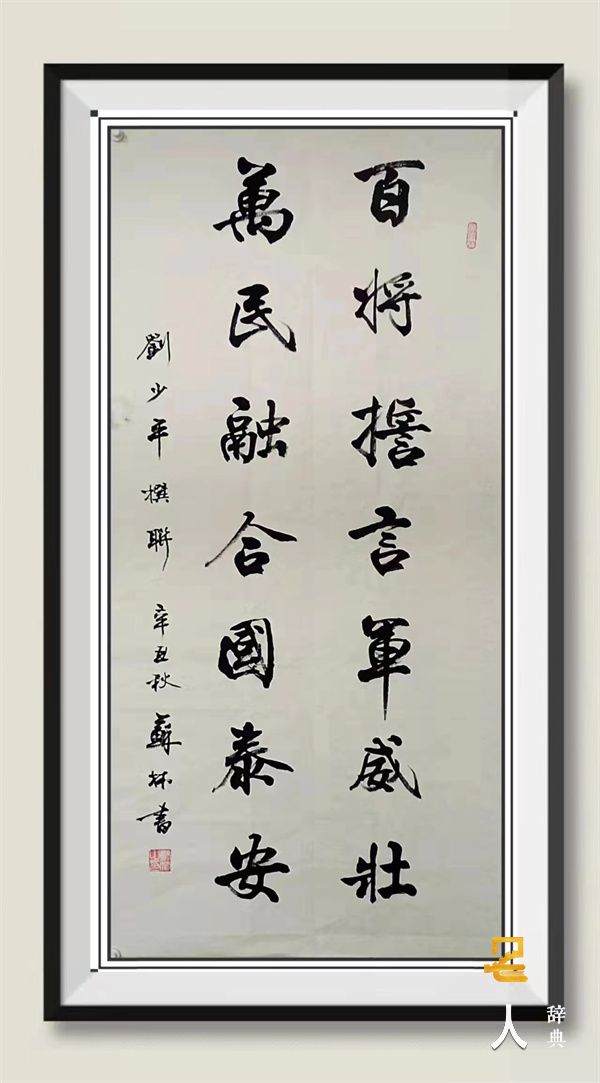 百将擔言軍威壯
萬民融合國泰安
劉少平撰聯 辛丑秋 蘇林書
名人
辞典